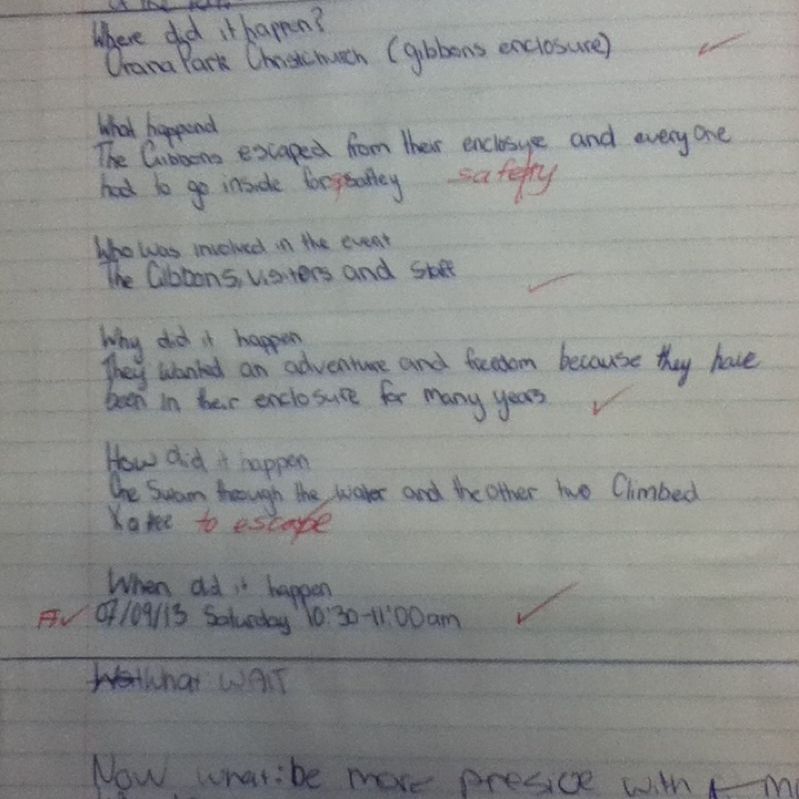 Where did it happen?
Orana Park Christchurch (gibbons enclosure)
What happend
The Gibbons escaped from their enclosye and everyone
had to go inside for saftey safety
Who was involved in the event
The Gibbons, visiters and staff
Why did it happen
They wanted an adventure and freedom because they have
been in their enclosure for many years
How did it happen
One Swam through the water and the other two Climbed
a tree to escape
When did it happen
07/09/13 Saturday 10:30-11:00am
What WAIT
Now what: be more presice with